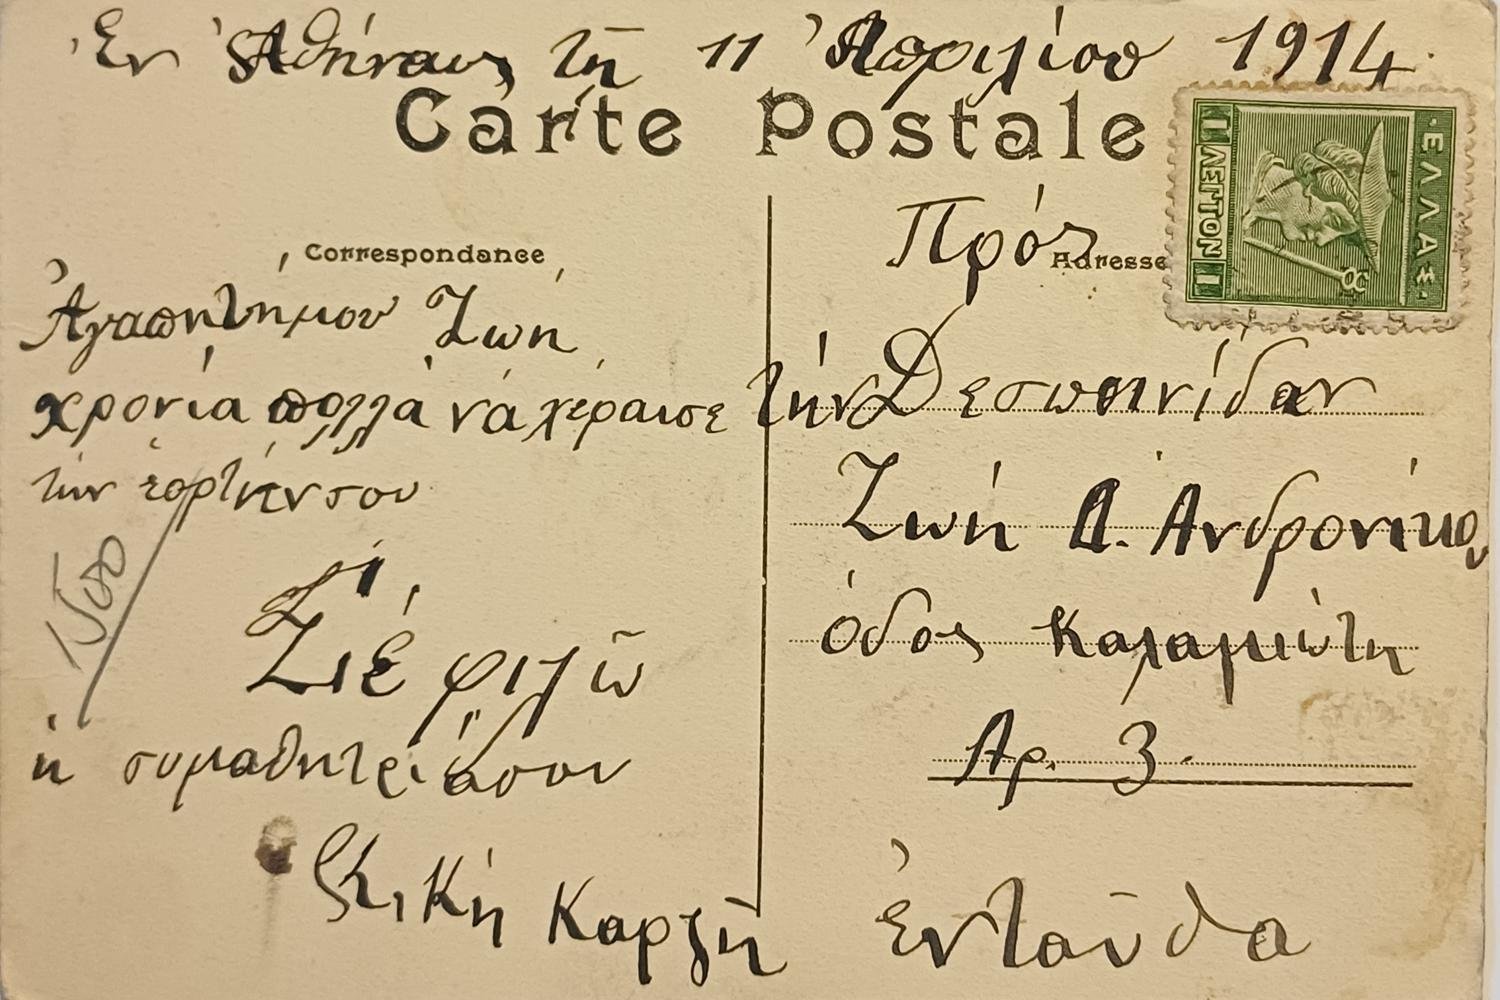 Ἐν Ἀθήναις τῇ 11 Ἀπριλίου 1914
Carte Postale
ΕΛΛΑΣ
1 ΛΕΠΤΟΝ 1
Correspondance
Ἀγαπητήμου Ζωή
χρόνια πολλά νά χέραισε
τήν ἑορτήνσου
Σέ φιλῶ
ἡ συμαθητριάσου
Κική Καρζῆ
Πρός
Adresse
τήν Δεσποινίδαν
Ζωή Δ. Ανδρονίκου
ὁδος Καλαμιώτη
Αρ. 3.
ἐνταῦθα